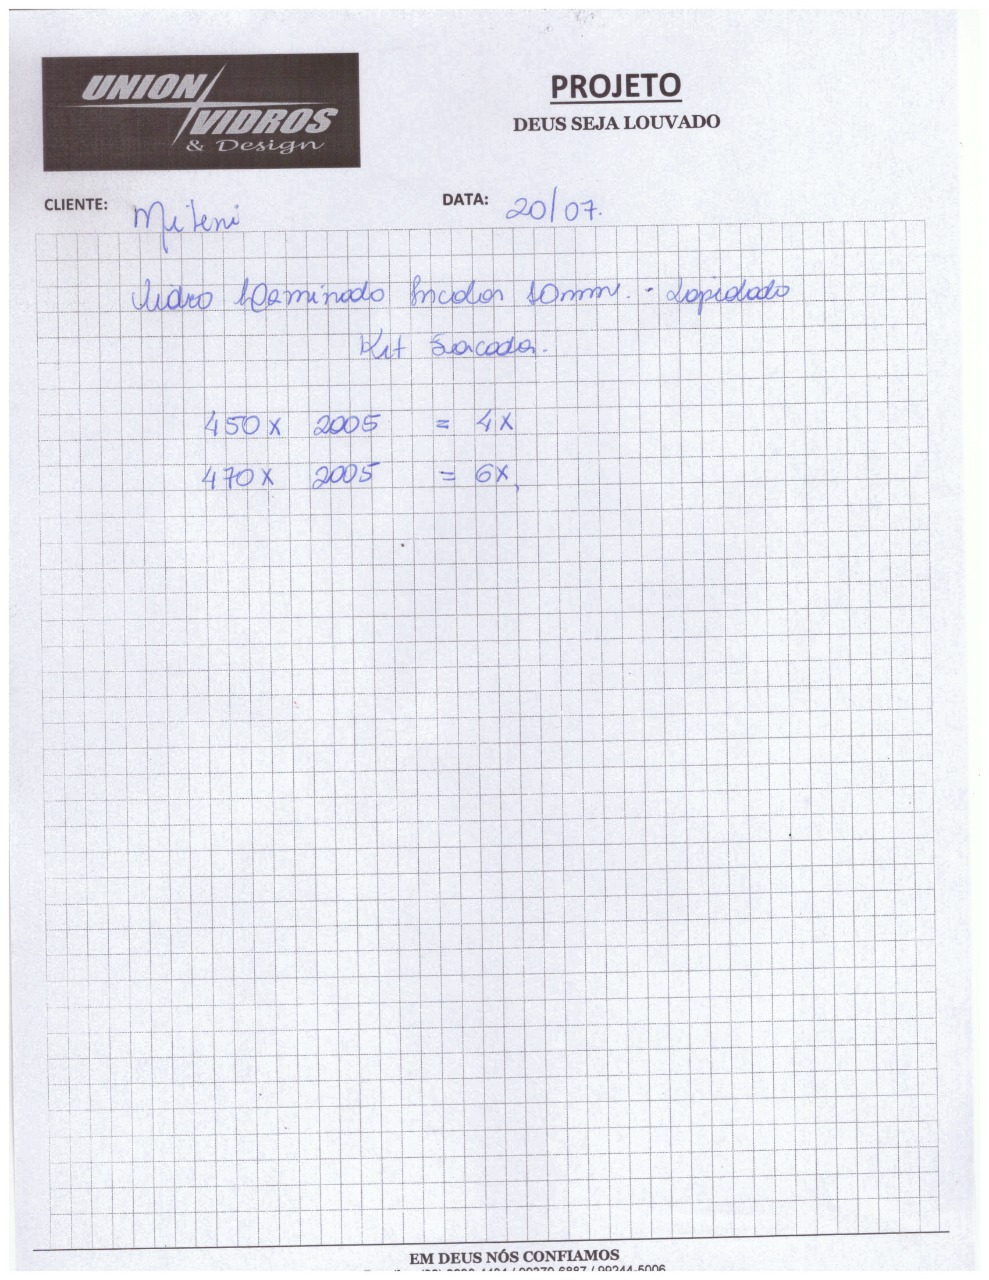 UNION
VIDROS
& Design
PROJETO
DEUS SEJA LOUVADO
CLIENTE: Mileni
DATA: 20/07.
Vidro Laminado Incolor 10mm. - Lapidado
Kit Sacada.
450 x 2005 = 4x
470 x 2005 = 6x
EM DEUS NÓS CONFIAMOS